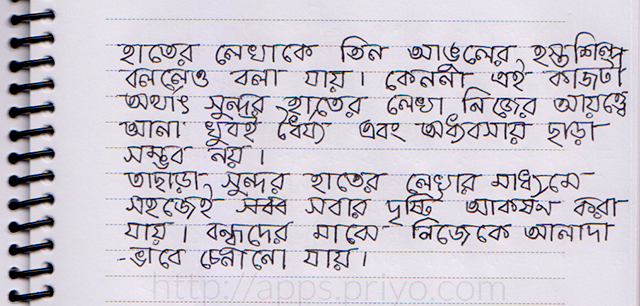 হাতের লেখাকে তিন আঙুলের হস্তশিল্প
বললেও বলা যায়। কেননা এই কাজটা
অর্থাৎ সুন্দর হাতের লেখা নিজের আয়ত্ত্বে
আনা খুবই ধৈর্য্য এবং অধ্যবসায় ছাড়া
সম্ভব নয়।
তাছাড়া সুন্দর হাতের লেখার মাধ্যমে
সহজেই সবার দৃষ্টি আকর্ষন করা
যায়। বন্ধুদের মাঝে নিজেকে আলাদা
-ভাবে চেনানো যায়।
http://apps.priyo.com